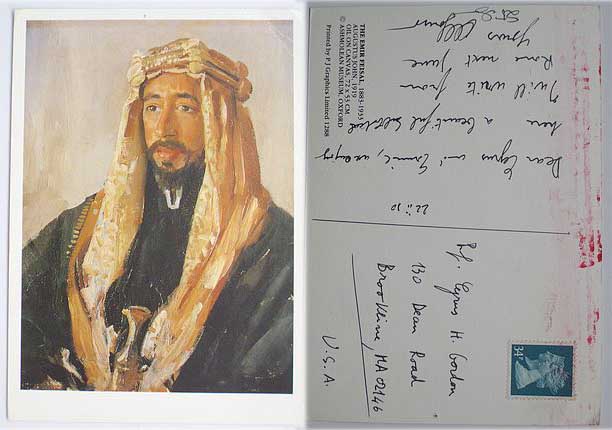 THE EMIR FEISAL, 1883-1933
AUGUSTUS JOHN, 1919
OIL ON CANVAS, 72 x 53 CM
© ASHMOLEAN MUSEUM, OXFORD
Printed by P J Graphics Limited 1288
Dear Cyrus
here a beautiful
I will write from
Rome next June
Yours
Prof. Cyrus H. Gordon
130 Dean Road
Brookline, MA 02146
U.S.A.
34